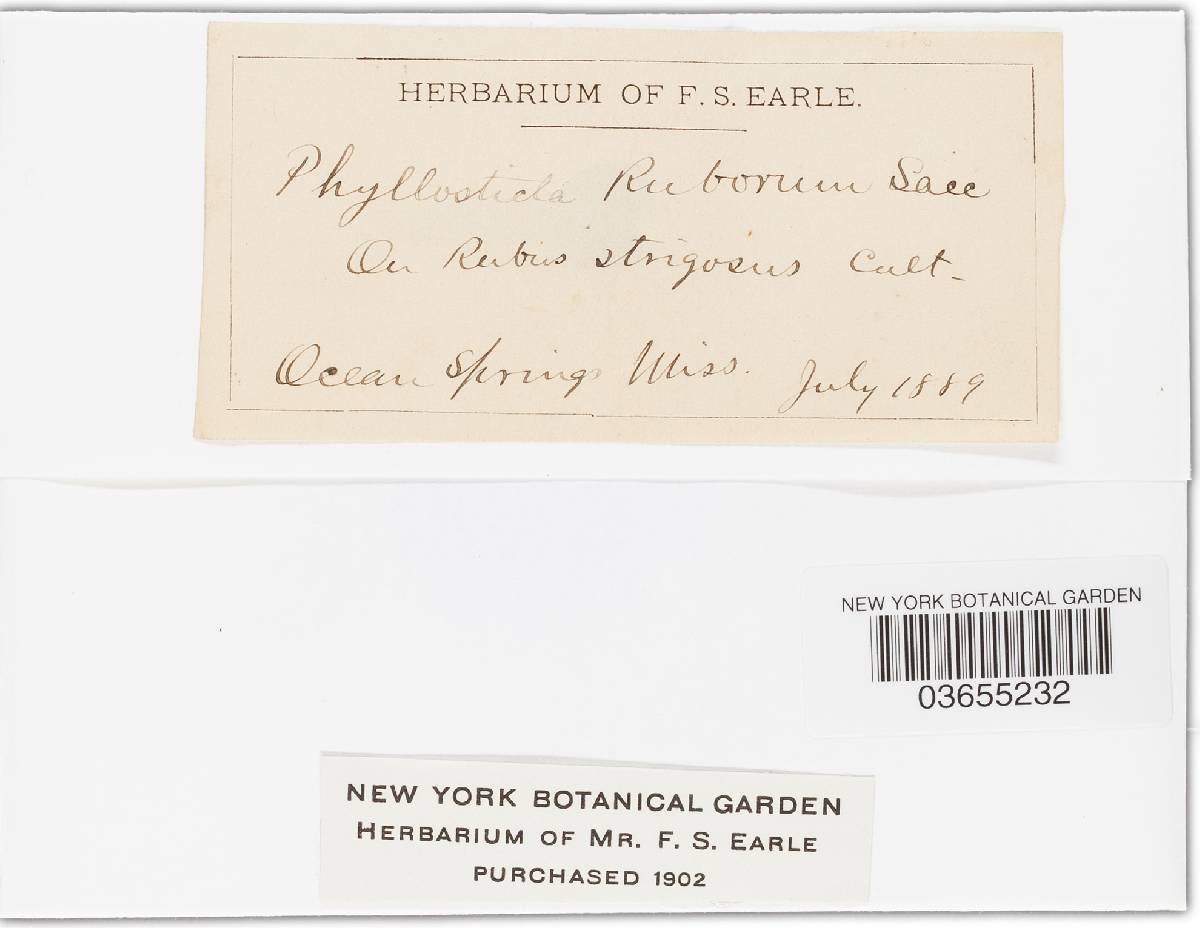 HERBARIUM OF F. S. EARLE.
Phyllosticta Ruborum Sacc
On Rubus strigosus Cult-
Ocean Springs Miss. July 1889
NEW YORK BOTANICAL GARDEN
03655232
NEW YORK BOTANICAL GARDEN
HERBARIUM OF MR. F. S. EARLE
PURCHASED 1902